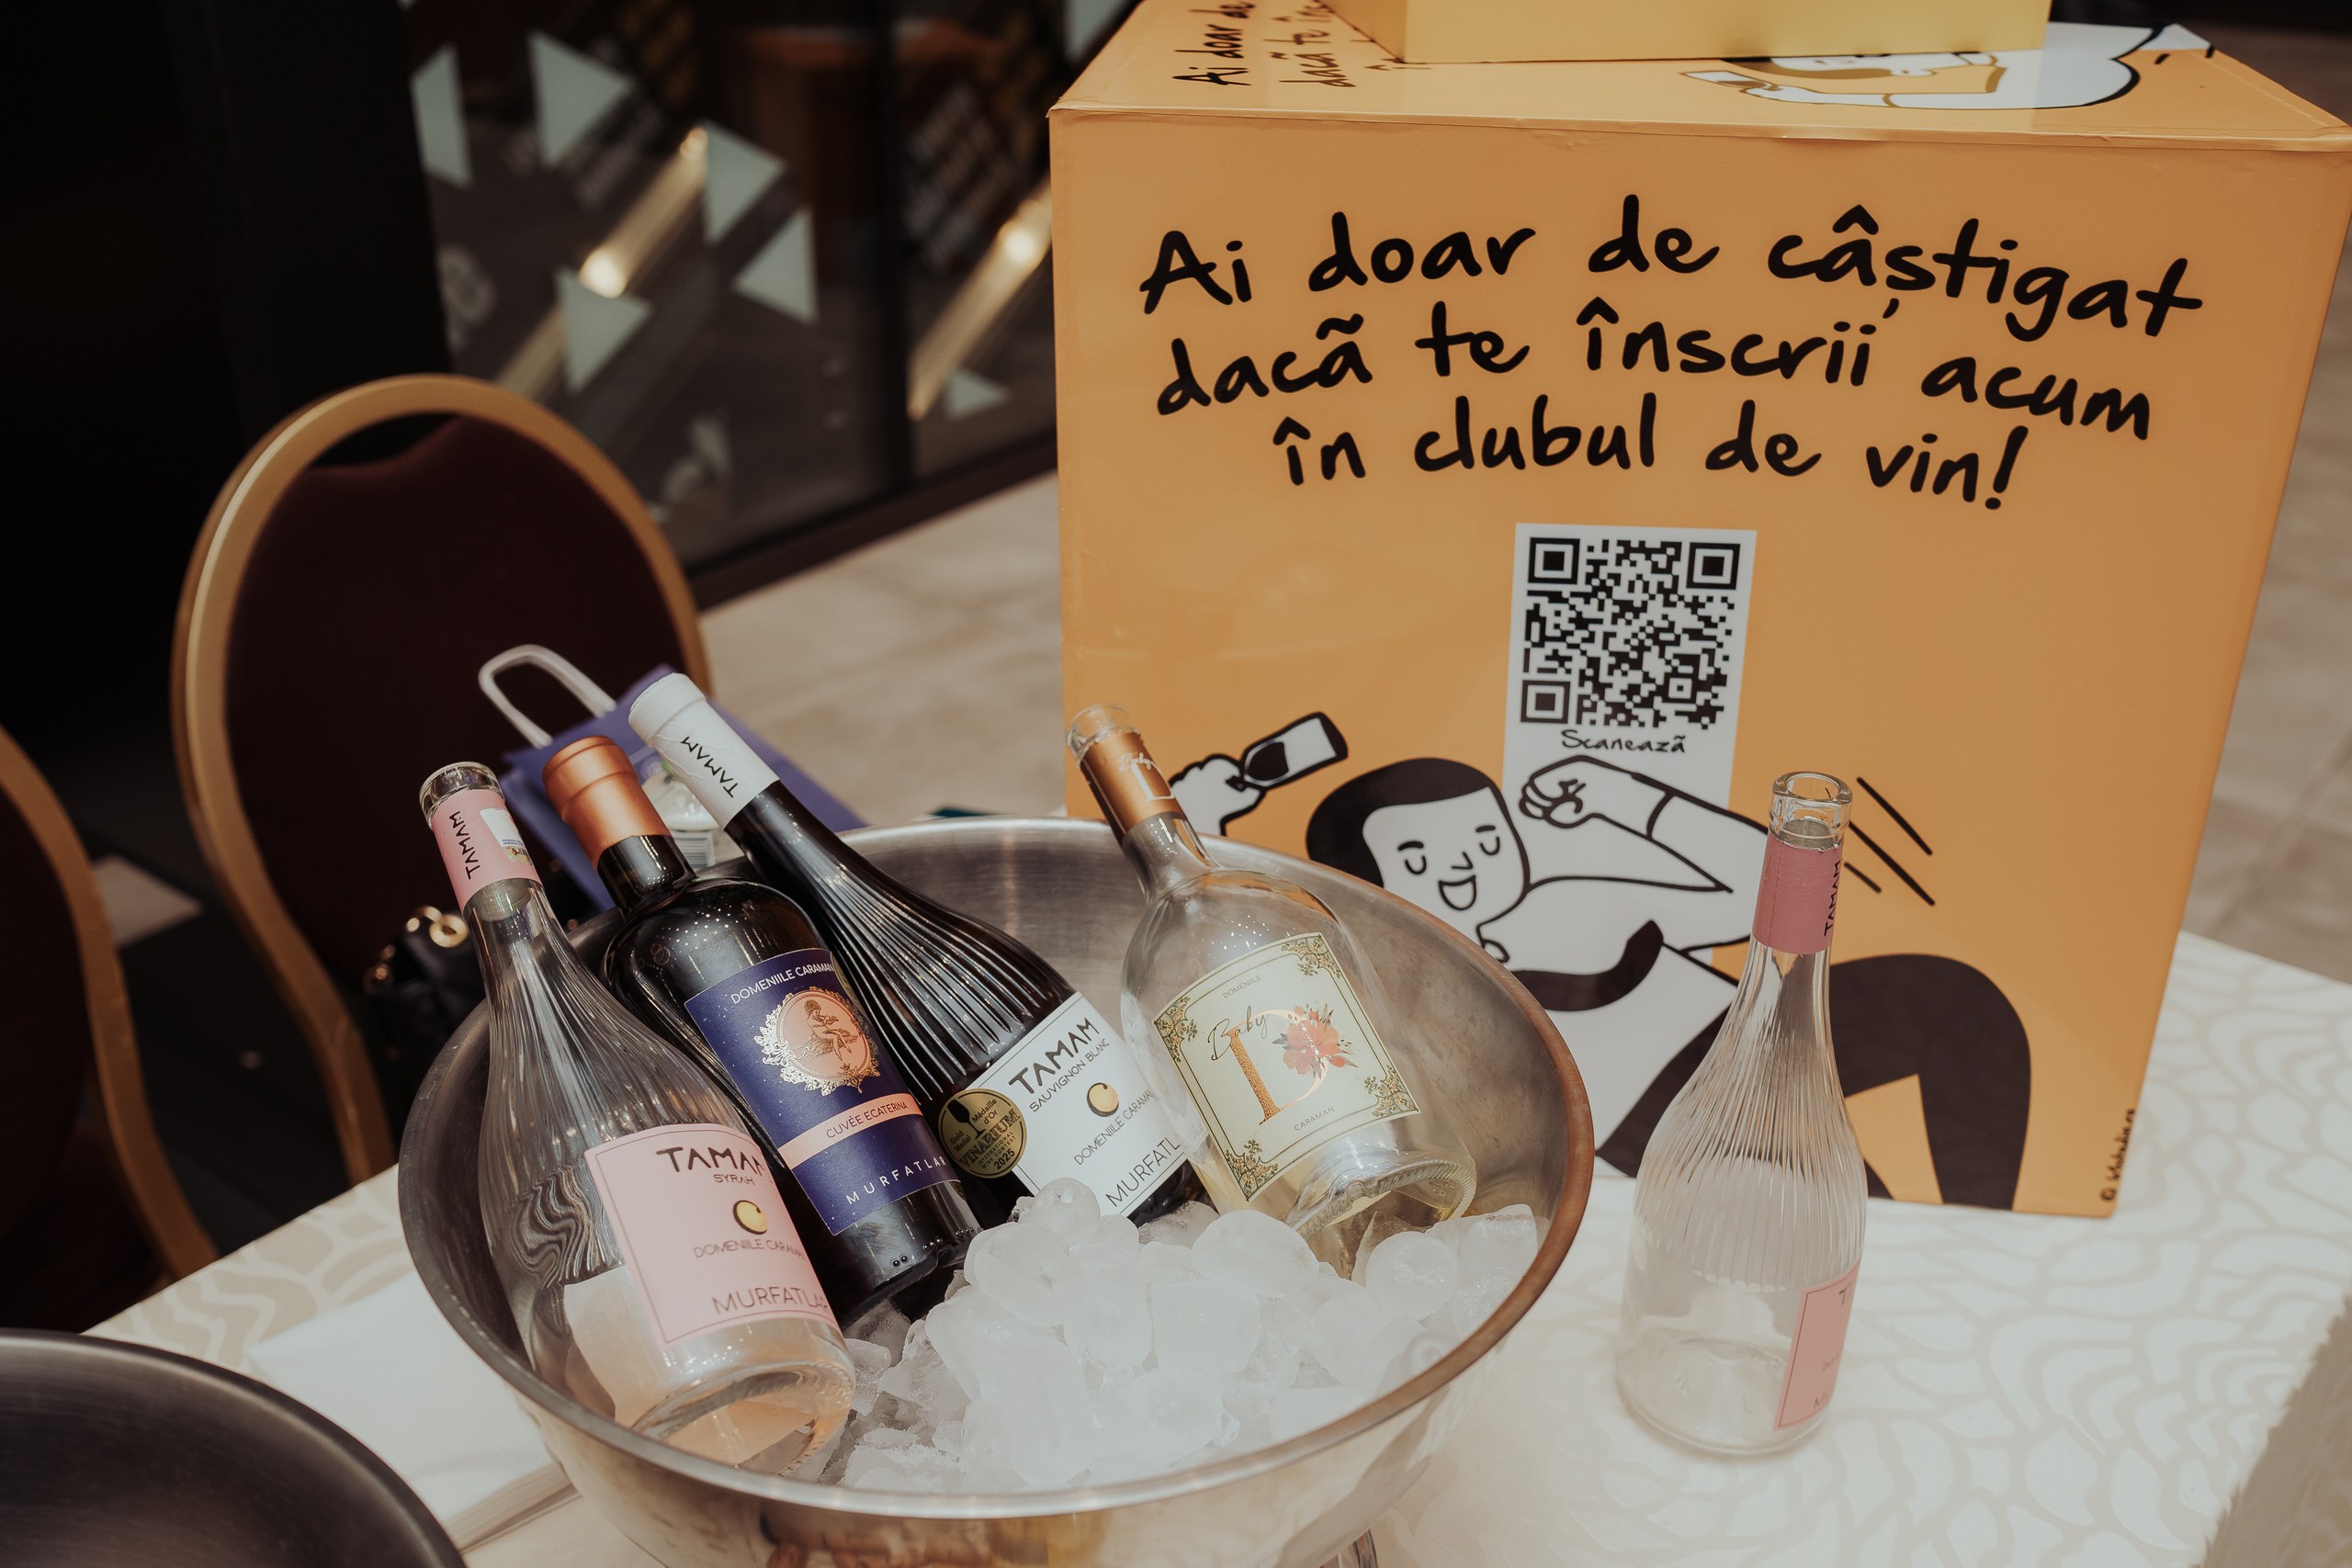 Ai doar de
dacă te îns
Ai doar de câștigat
dacă te înscrii acum
în clubul de vin!
Scanează
TAMAM
TAMAM
TAMAM
DOMENIILE CARAMAN
CUVÉE ECATERINA
MURFATLAR
TAMAM
SAUVIGNON BLANC
DOMENIILE CARAMAN
MURFATL
Gold Medal
Médaille d'Or
VINARIUM
INTERNATIONAL WINE CONTEST
2025
DOMENIILE
Baby
D
CARAMAN
TAMAM
SYRAH
DOMENIILE CARAMAN
MURFATLAR